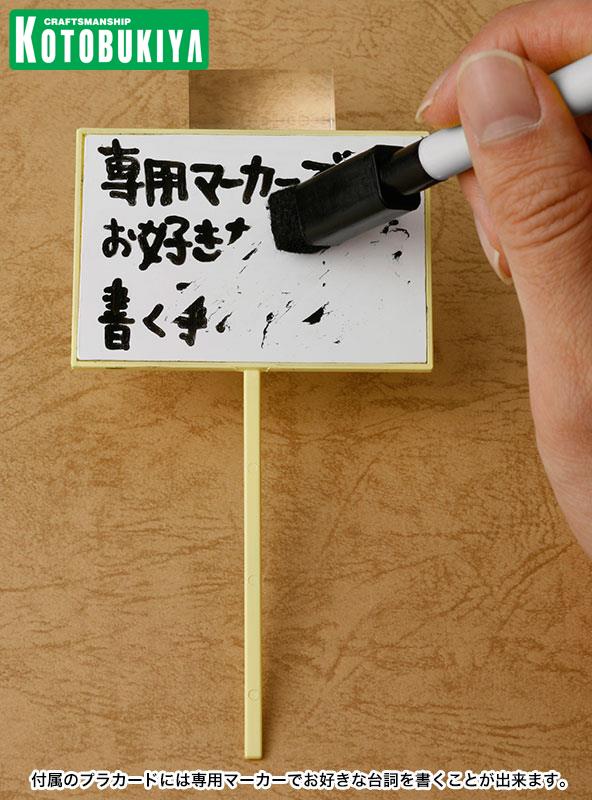 CRAFTSMANSHIP
KOTOBUKIYA
専用マーカーで
お好きな
書く事
付属のプラカードには専用マーカーでお好きな台詞を書くことが出来ます。